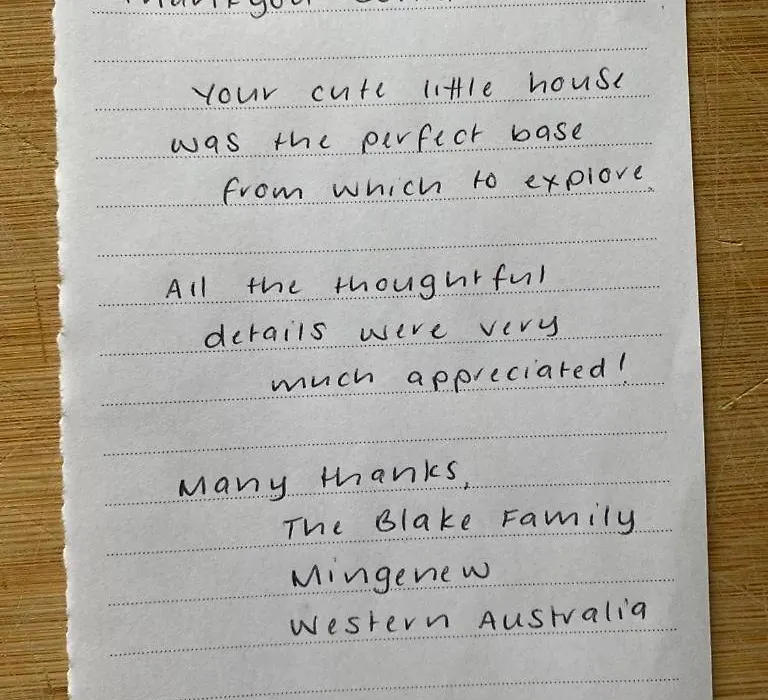 Thankyou
Your cute little house
was the perfect base
from which to explore.
All the thoughtful
details were very
much appreciated!
Many thanks,
The Blake Family
Mingenew
Western Australia